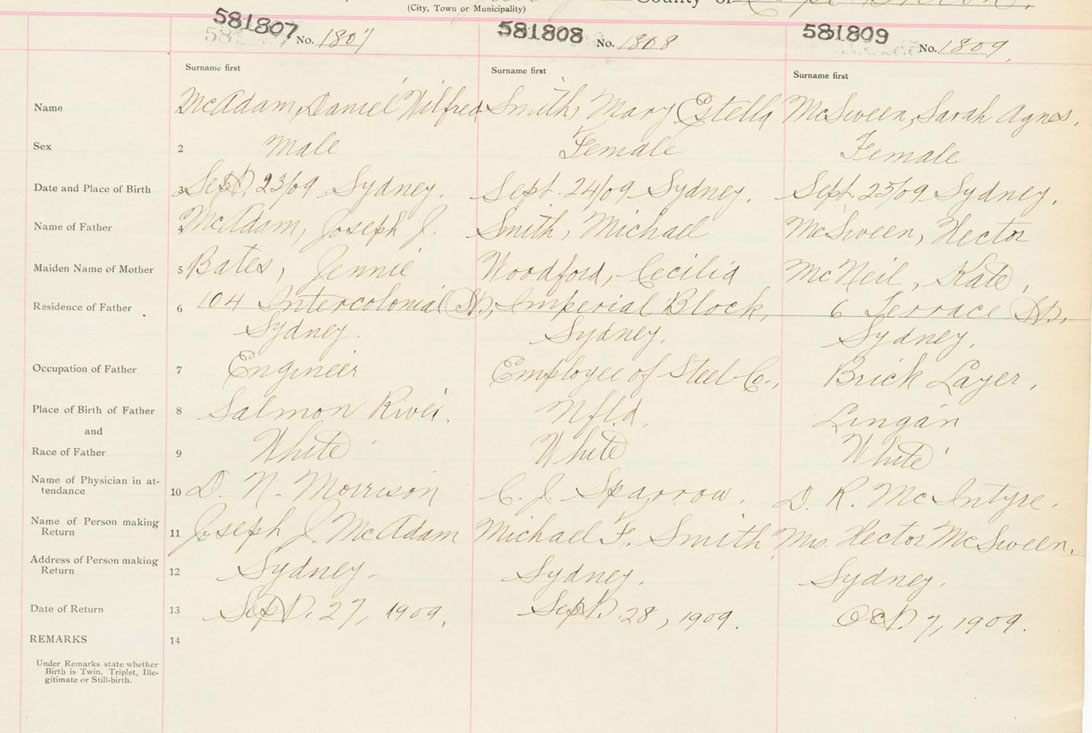 (City, Town or Municipality)
County of Cape Breton.
581807 No. 1807 581808 No. 1808 581809 No. 1809
Surname first Surname first Surname first
Name 1 McAdam, Daniel Wilfred Smith, Mary Estella McSween, Sarah Agnes.
Sex 2 Male Female Female
Date and Place of Birth 3 Sept. 23/09 Sydney. Sept. 24/09 Sydney. Sept. 25/09 Sydney.
Name of Father 4 McAdam, Joseph J. Smith, Michael McSween, Hector
Maiden Name of Mother 5 Bates, Jennie Woodford, Cecilia McNeil, Kate,
Residence of Father 6 104 Intercolonial St., Imperial Block, 6 Terrace St,
Sydney. Sydney. Sydney.
Occupation of Father 7 Engineer Employee of Steel Co., Brick Layer.
Place of Birth of Father 8 Salmon River. Nfld. Lingan
and
Race of Father 9 White White White
Name of Physician in at-
tendance 10 D. N. Morrison C. J. Sparrow. D. R. McIntyre.
Name of Person making
Return 11 Joseph J. McAdam Michael F. Smith Mrs. Hector McSween.
Address of Person making
Return 12 Sydney. Sydney. Sydney.
Date of Return 13 Sept. 27, 1909. Sept. 28, 1909. Oct. 7, 1909.
REMARKS 14
Under Remarks state whether
Birth is Twin, Triplet, Ille-
gitimate or Still-birth.